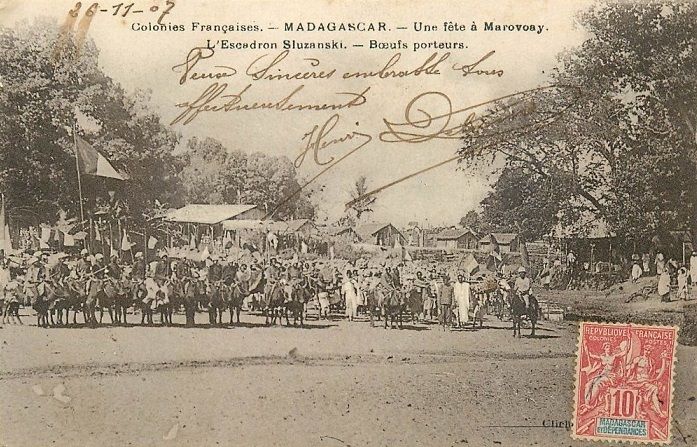 26-11-07
Colonies Françaises. — MADAGASCAR. — Une fête à Marovoay.
L'Escadron Sluzanski. — Bœufs porteurs.
Sincères embrassades
affectueusement
Henri
Cliché
REPUBLIQUE FRANÇAISE
COLONIES POSTES
10
MADAGASCAR
ET DÉPENDANCES